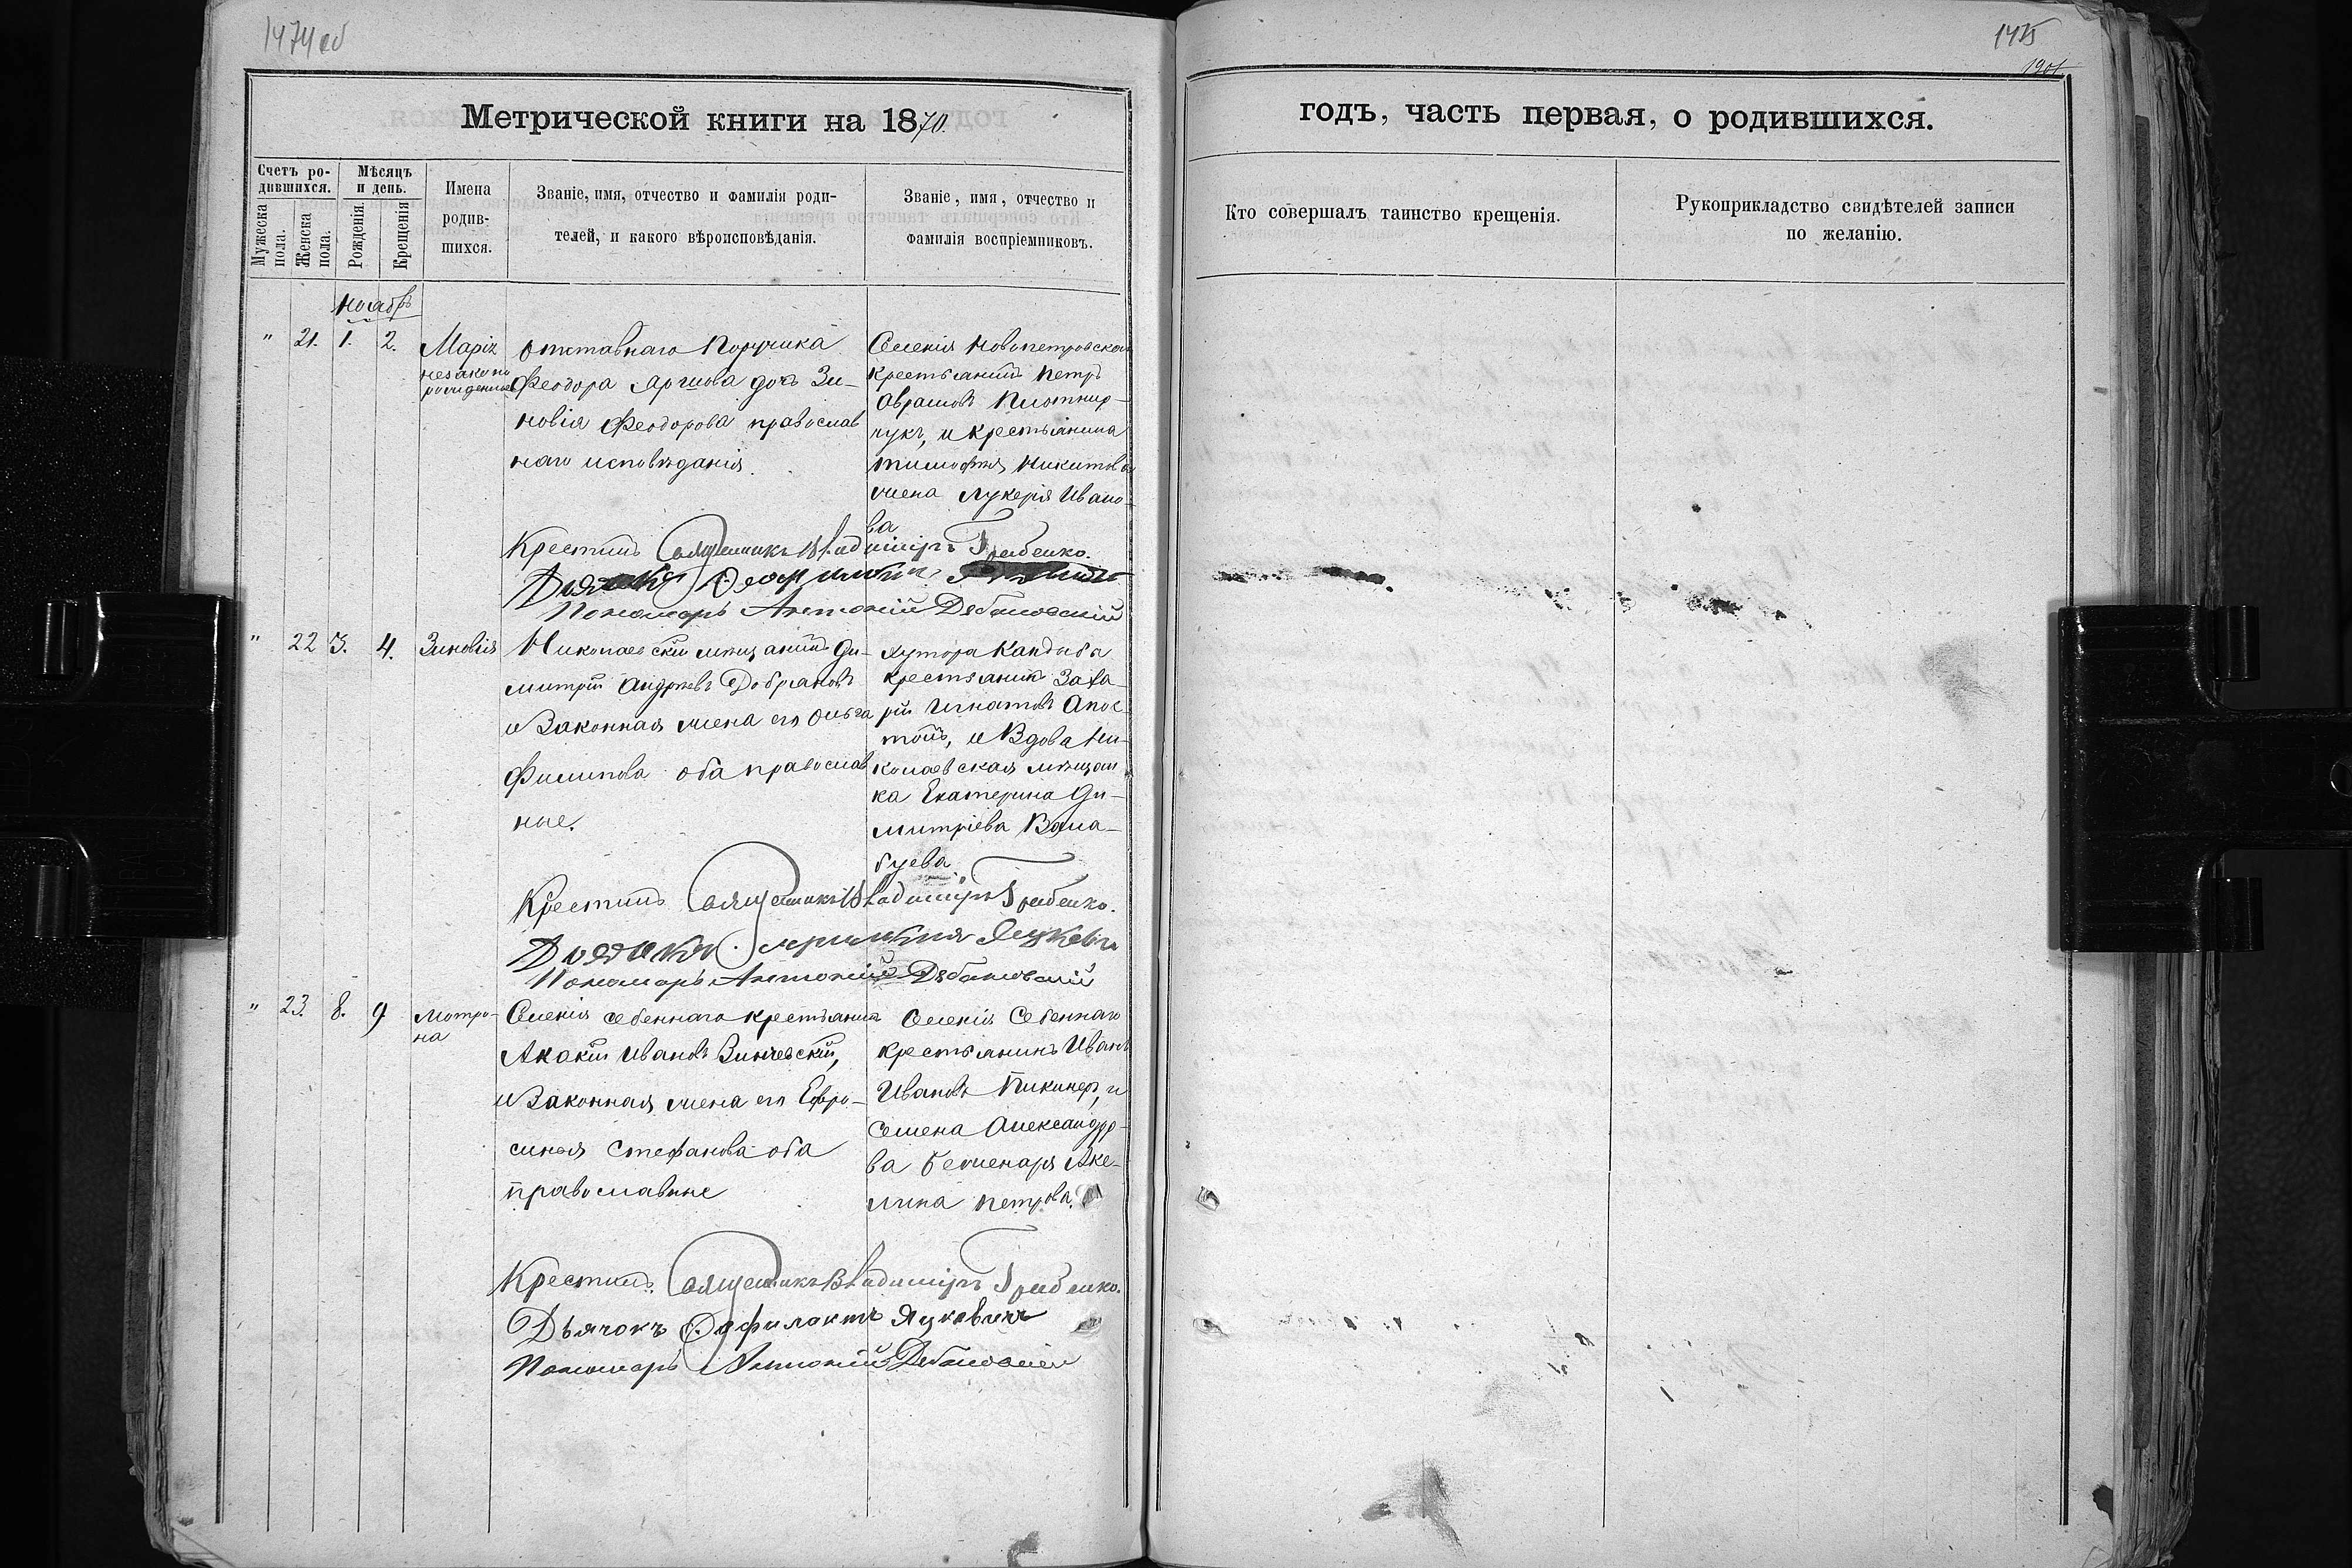 1474 об
1475
1901.
Метрической книги на 1870.
годъ, часть первая, о родившихся.
Счетъ ро-
дившихся.
Мужеска
пола.
Женска
пола.
Мѣсяцъ
и день.
Рожденія.
Крещенія
Имена
родив-
шихся.
Званіе, имя, отчество и фамилія роди-
телей, и какого вѣроисповѣданія.
Званіе, имя, отчество и
фамилія воспріемниковъ.
Кто совершалъ таинство крещенія.
Рукоприкладство свидѣтелей записи
по желанію.
ноябрь
" 21. 1. 2.
Марія
незаконо
рожденная
отставнаго Поручика
Феодора Яршова дочь Зи-
новія Феодорова православ
наго исповѣданія.
Селенія Новопетровскаго
крестьянинъ Петръ
Аврамовъ
чукъ, и крестьянина
Тимофея Никитова
жена Лукерія Ивано-
ва
Крестилъ Священникъ Владиміръ Гребенко.
Дьячокъ
Пономарь Антоній
" 22 3. 4.
Зиновія
Николаевскій мѣщанинъ Ди-
митрій Андреевъ Добрановъ
и Законная жена его Ольга
Филипова оба православ
ные.
хутора Кандыбы
крестьянинъ Заха-
рій Игнатовъ Апос-
толъ, и Вдова Ни-
колаевская мѣщан
ка Екатерина Ди-
митріева
буева
Крестилъ Священникъ Владиміръ Гребенко.
Дьячокъ
Пономарь Антоній
" 23. 8. 9
Мотро-
на
Селенія Себеннаго крестьянинъ
Акакій Ивановъ Зинчевскій,
и Законная жена его Евфро-
синья Стефанова оба
православные
Селенія Себеннаго
крестьянинъ Иванъ
Ивановъ Пикинеръ, и
Семена Александро-
ва Беженаря Аке-
лина Петрова.
Крестилъ Священникъ Владиміръ Гребенко.
Дьячокъ Феофилактъ Яцкевичъ
Пономарь Антоній